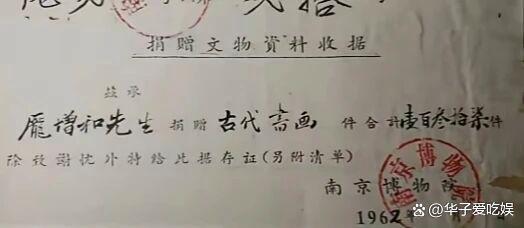 捐贈文物資料收据
兹承
龐增和先生 捐贈 古代書画 件合計壹百叁拾柒件
除致謝忱外特給此据存证(另附清单)
南京博物院
1962年
@华子爱吃娱